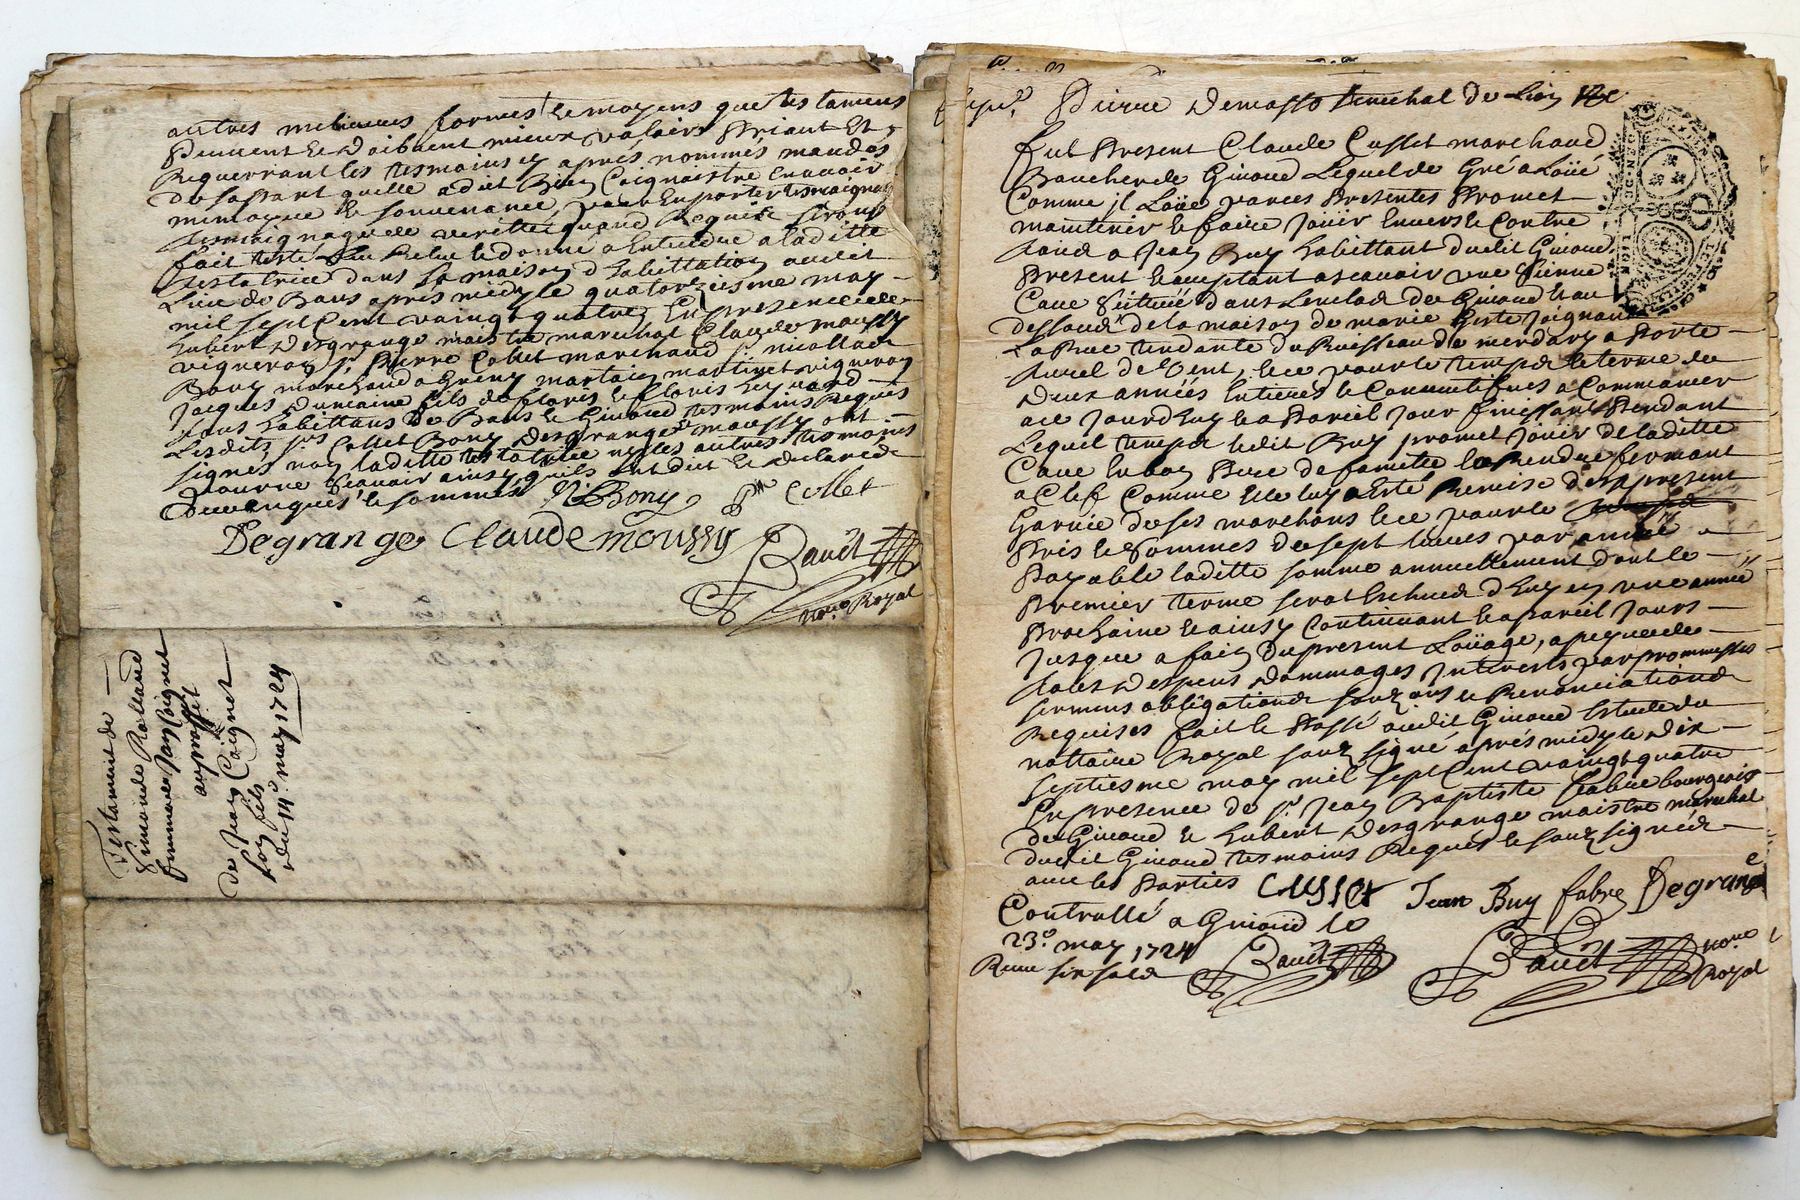 autres meilleures formes & moyens que testament
peuvent & doibvent mieux valoir Priant &
Requerrant les tesmoins cy aprés nommés mandés
de sa part quelle a dit Bien Coignoistre en avoir
memoyre & souvenance pour en porter tesmoignage
de veritté quand Requis seront
fait Leu Releu & donné a Entendre a laditte
testatrice dans sa maison d'habittation audit
Lieu de Bans aprés midy le quatorziesme may
mil sept Cent vaingt quatre En presence de
hubert desgrange maistre marechal Claude moussy
vigneron Sr. Pierre Collet marchand Sr. nicollas
Bony marchand a Grigny martin vigneron
Jacques dumaine fils
tous habittans de Bans & Givord tesmoins Requis
Lesdits srs. Collet Bony desgrange & moussy ont
signés non laditte testatrice ny les autres tesmoins
pour ne sçavoir ainsy quils ont dit & declaré de
ce enquis & sommés N Bony Pre Collet
Degrange Claude moussy
Bauët
nore. Royal
Testament de
Simonde Rolland
femme a Jean Coignet
au proffit
de Jean Coignet
son fils
du 14e. may 1724
Pierre Demasso senechal de Lion
fut Present Claude Cusset marchand
Boucher de Givord Lequel de Gré a Loüé
Comme il Loüe par ces Presentes Promet
maintenir & faire Joüir Envers & Contre
tous a Jean Buy habittant dudit Givord
Present & acceptant ascavoir une sienne
Cave scittuée dans Lenclos de Givord & au
dessoubs de la maison de marie joignant
La Rue tendante du Ruisseau de merdary a Porte
de vent, & ce pour le temps & terme de
deux années Entieres & Consecutifves a Commancer
a ce Jourdhuy & a Pareil jour finissant Pendant
Lequel temps ledit Buy promet joüir de laditte
Cave En bon Pere de famille la Rendre fermant
a Clef Comme Elle luy a Esté Remise des apresent
Garnie de ses marchons & ce pour le
Pris & sommes de sept livres par année
Payable laditte somme annuellement dont le
Premier terme sera Escheu d'huy en une année
Prochaine & ainsy Continuant & a pareil Jours
Jusque a fin du present Loüage, a peyne de
tous despens dommages Interests par prommesses
sermens obligations & Renonciations
Requises fait & Passé audit Givord Estude du
nottaire Royal soubsigné aprés midy le dix
septiesme may mil sept Cent vaingt quatre
En presence de sr. Jean Baptiste fabre bourgeois
de Givord & hubert desgrange maistre marechal
dudit Givord tesmoins Requis & soubsignés
avec les Parties Cusset Jean Buy fabre Degrange
Controllé a Givord le
23e. may 1724 Bauët Bauët nore.
Receu six sols Royal